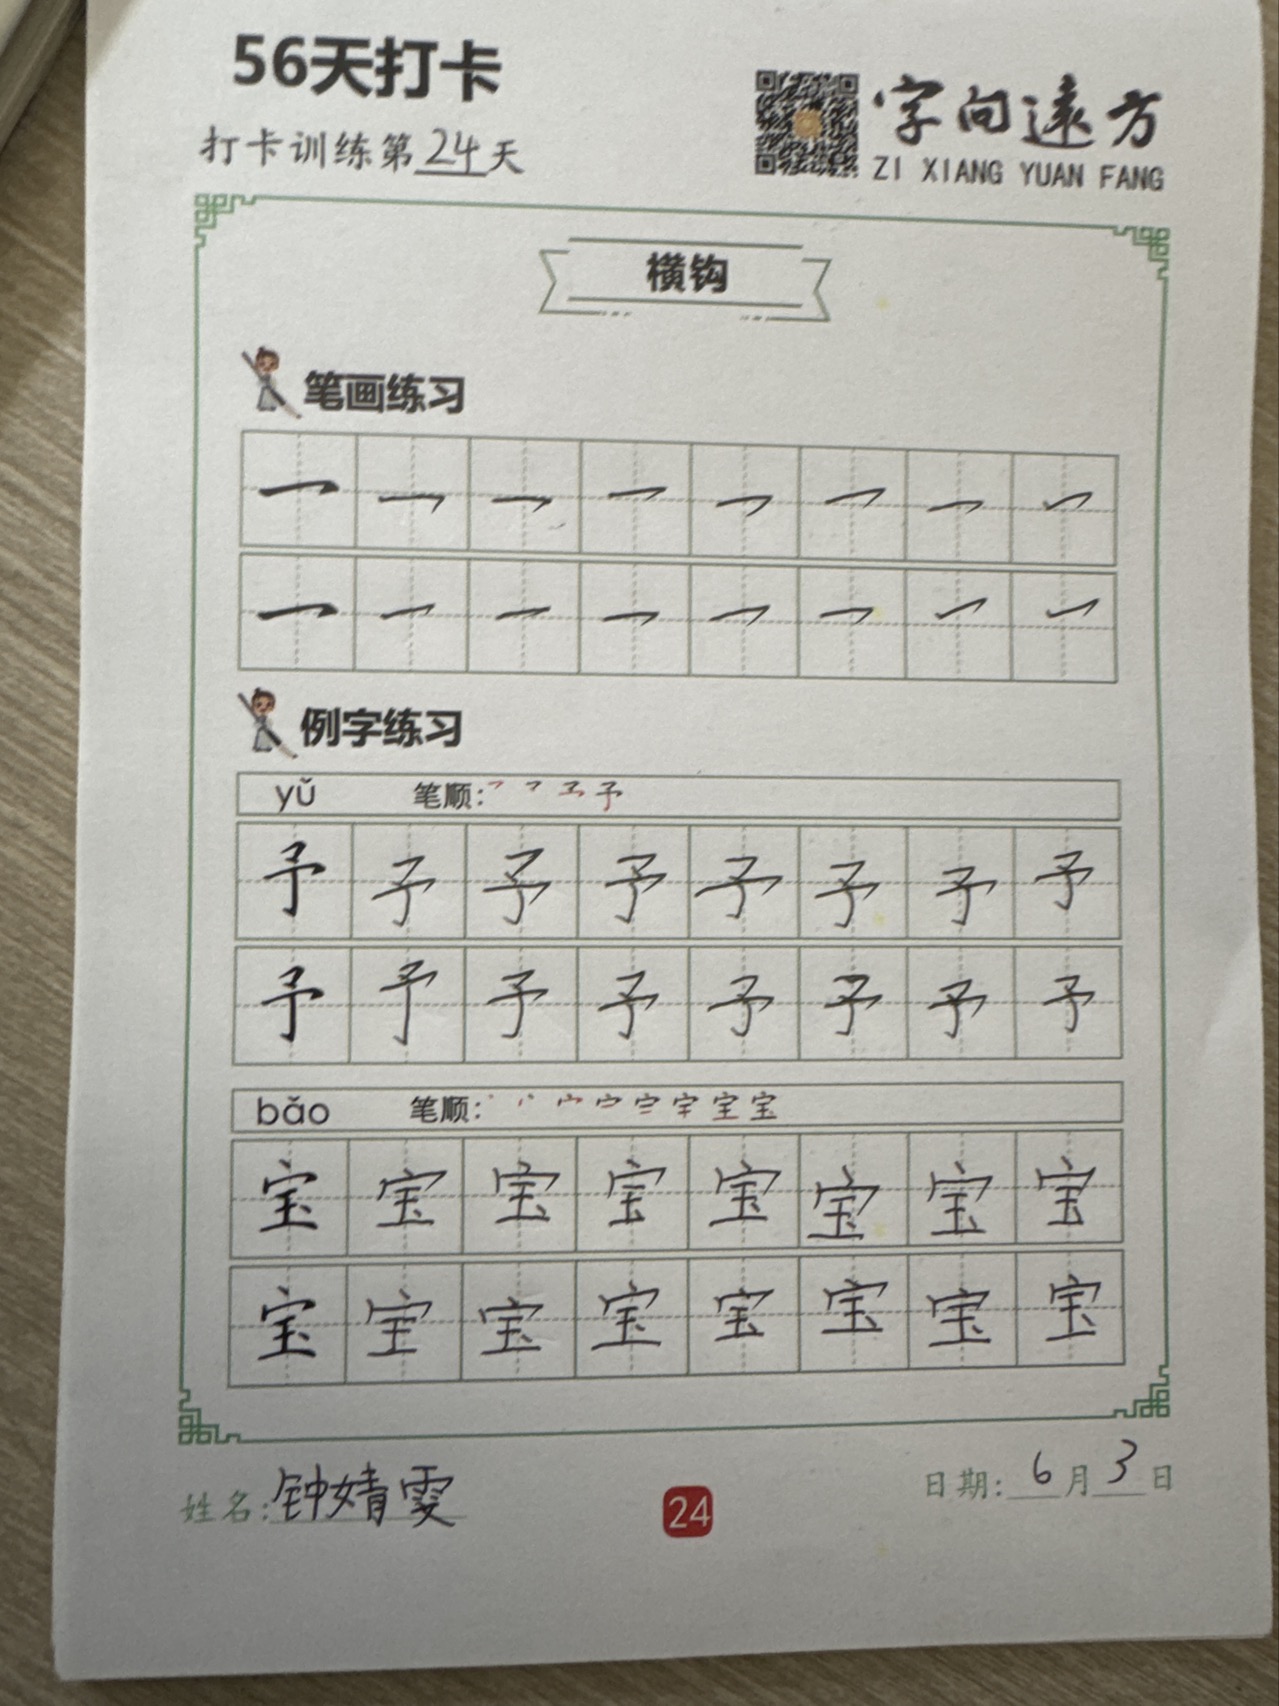 56天打卡
字向远方
打卡训练第24天
ZI XIANG YUAN FANG
横钩
笔画练习
㇖ ㇖ ㇖ ㇖ ㇖ ㇖ ㇖ ㇖
㇖ ㇖ ㇖ ㇖ ㇖ ㇖ ㇖ ㇖
例字练习
yǔ 笔顺:
予 予 予 予 予 予 予 予
予 予 予 予 予 予 予 予
bǎo 笔顺:
宝 宝 宝 宝 宝 宝 宝 宝
宝 宝 宝 宝 宝 宝 宝 宝
姓名:钟婧雯
24
日期:6月3日